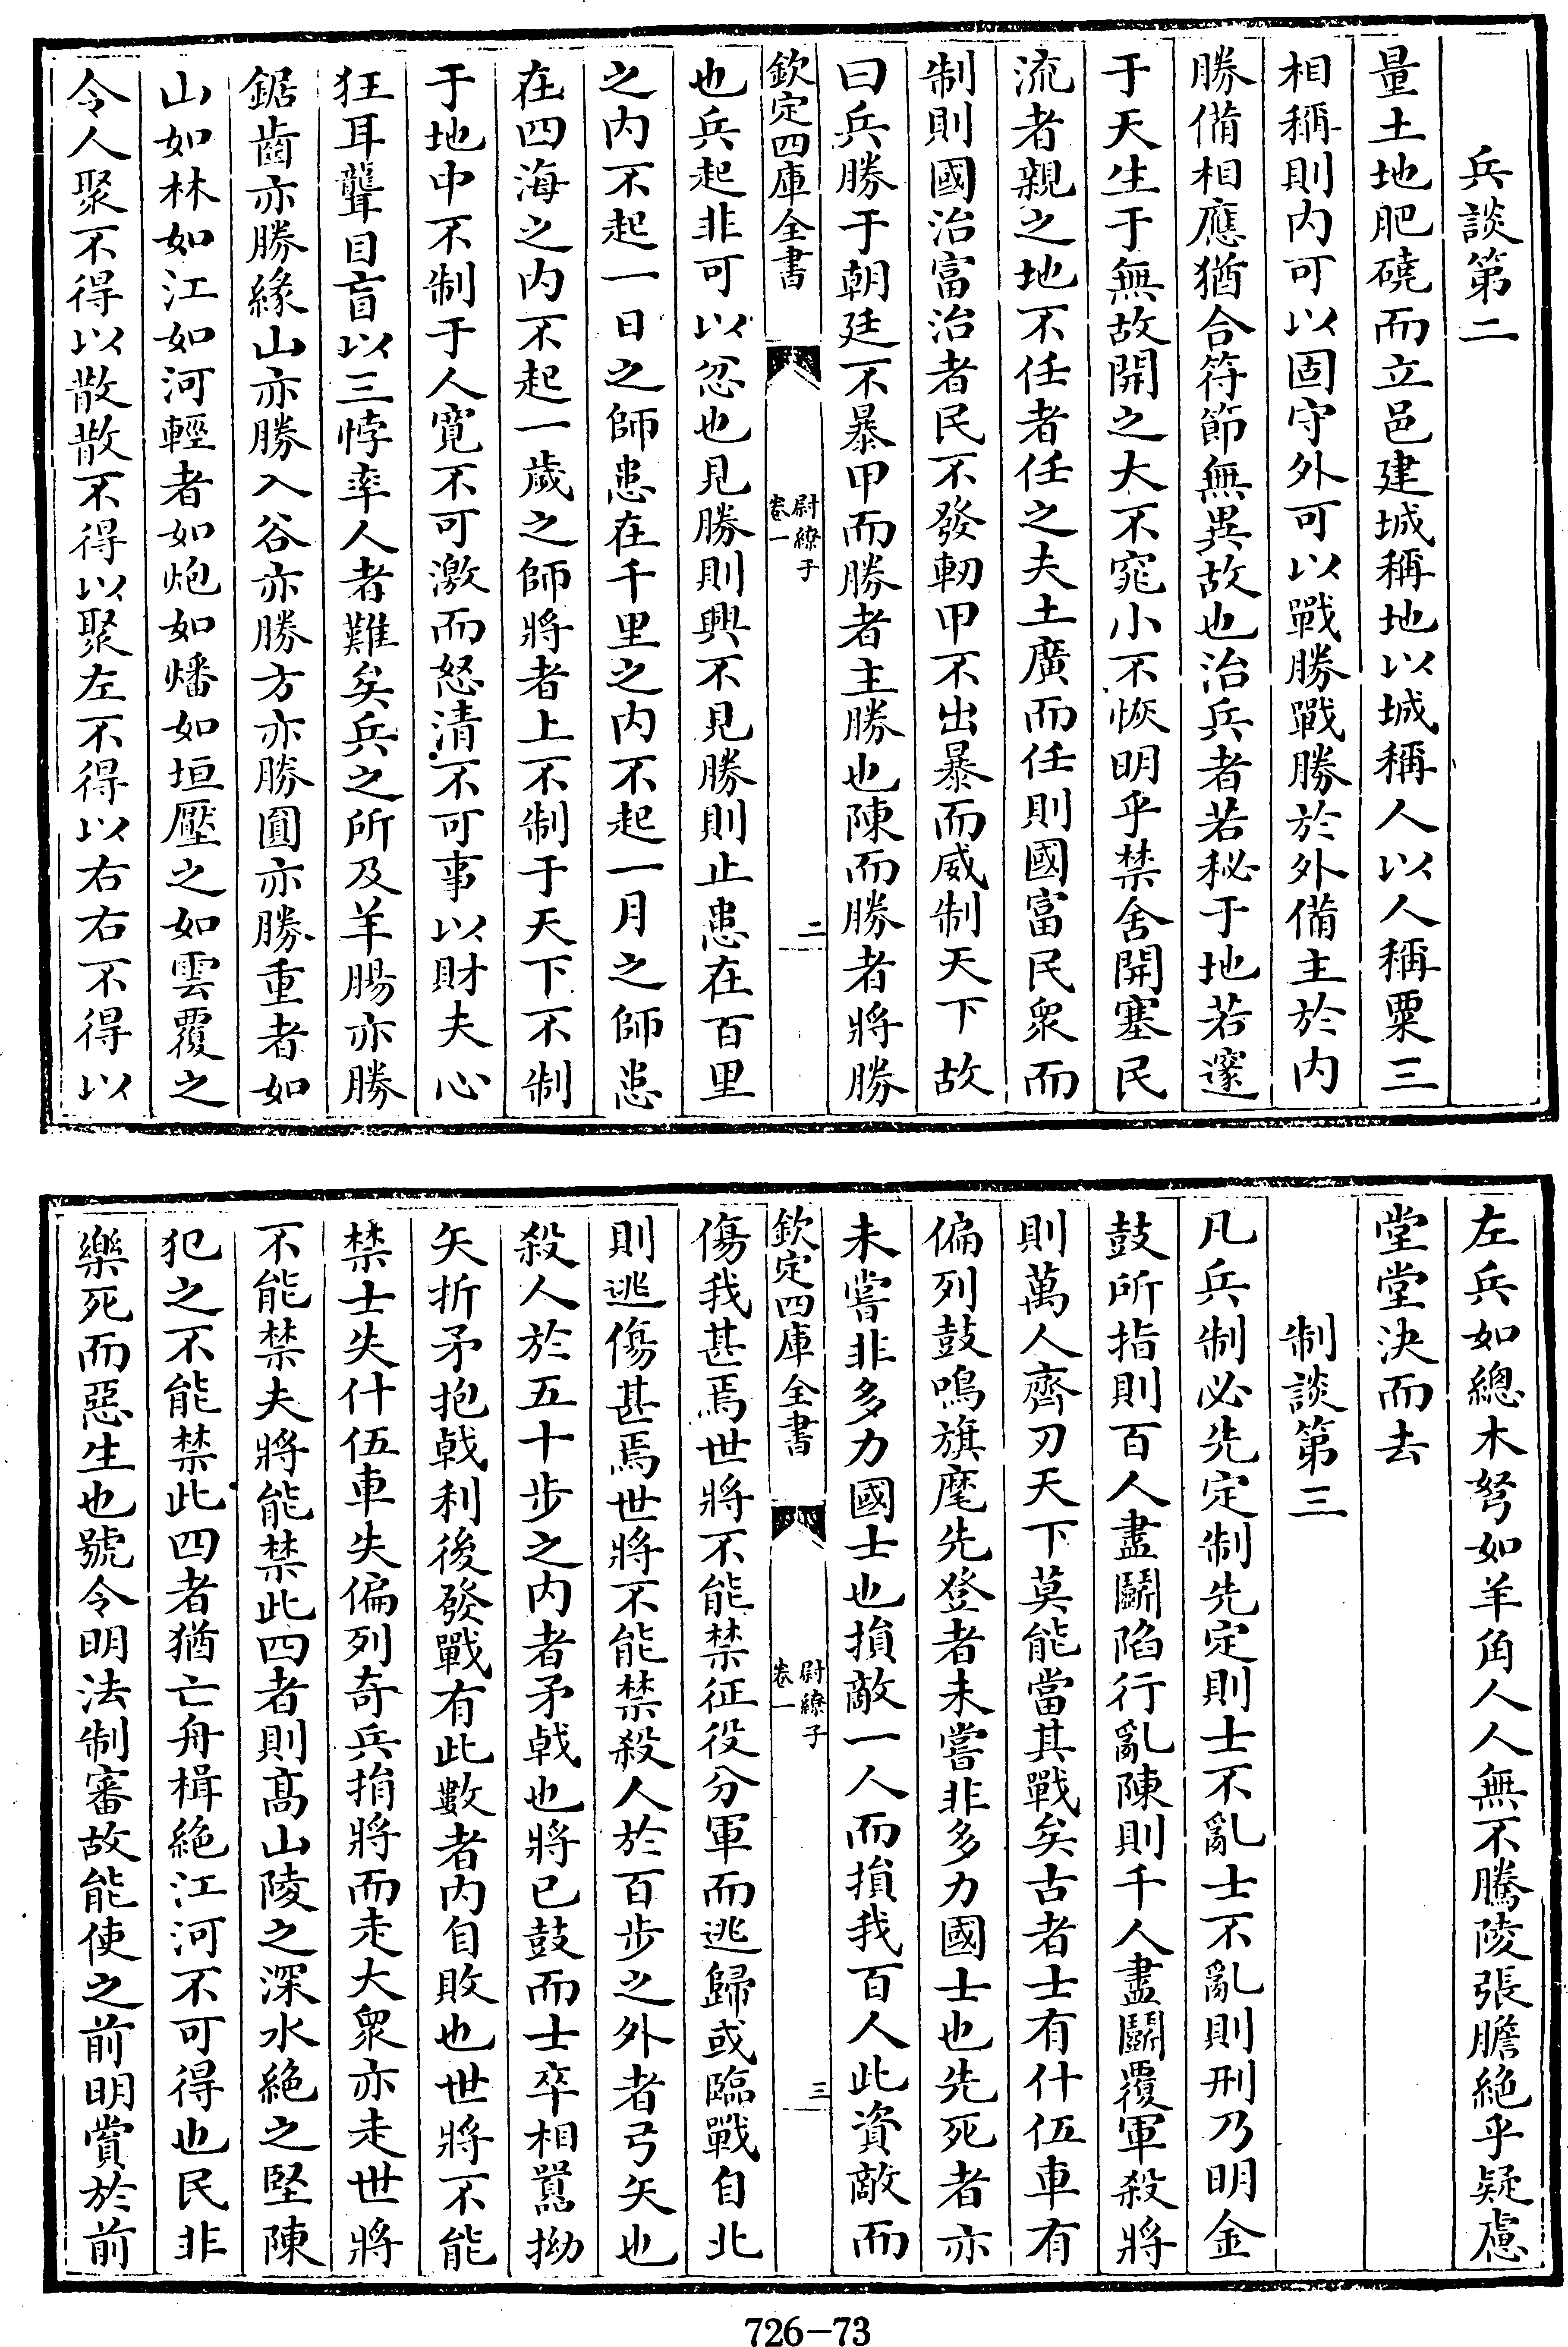 兵談第二
量土地肥磽而立邑建城稱地以城稱人以人稱粟三
相稱則内可以固守外可以戰勝戰勝於外備主於内
勝備相應猶合符節無異故也治兵者若秘于地若邃
于天生于無故開之大不窕小不恢明乎禁舍開塞民
流者親之地不任者任之夫土廣而任則國富民衆而
制則國治富治者民不發軔甲不出暴而威制天下故
曰兵勝于朝廷不暴甲而勝者主勝也陳而勝者將勝
欽定四庫全書
尉繚子
卷一
二
也兵起非可以忿也見勝則興不見勝則止患在百里
之内不起一日之師患在千里之内不起一月之師患
在四海之内不起一歲之師將者上不制于天下不制
于地中不制于人寛不可激而怒清不可事以財夫心
狂耳聾目盲以三悖率人者難矣兵之所及羊腸亦勝
鋸齒亦勝緣山亦勝入谷亦勝方亦勝圓亦勝重者如
山如林如江如河輕者如炮如燔如垣壓之如雲覆之
令人聚不得以散散不得以聚左不得以右右不得以
左兵如總木弩如羊角人人無不騰陵張膽絶乎疑慮
堂堂決而去
制談第三
凡兵制必先定制先定則士不亂士不亂則刑乃明金
鼓所指則百人盡鬭陷行亂陳則千人盡鬭覆軍殺將
則萬人齊刃天下莫能當其戰矣古者士有什伍車有
偏列鼓鳴旗麾先登者未嘗非多力國士也先死者亦
未嘗非多力國士也損敵一人而損我百人此資敵而
欽定四庫全書
尉繚子
卷一
三
傷我甚焉世將不能禁征役分軍而逃歸或臨戰自北
則逃傷甚焉世將不能禁殺人於百步之外者弓矢也
殺人於五十步之内者矛戟也將已鼓而士卒相嚚拗
矢折矛抱戟利後發戰有此數者内自敗也世將不能
禁士失什伍車失偏列奇兵捐將而走大衆亦走世將
不能禁夫將能禁此四者則髙山陵之深水絶之堅陳
犯之不能禁此四者猶亡舟楫絶江河不可得也民非
樂死而惡生也號令明法制審故能使之前明賞於前
726-73